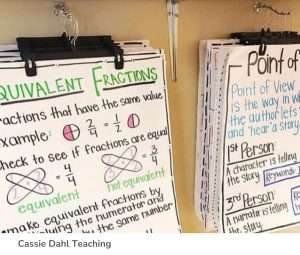 QUIVALENT FRACTIONS
actions that have the same value
xample: 2/4 = 1/2
heck to see if fractions are equal
4/4 3/4
equivalent not equivalent
make equivalent fractions by
the numerator and
by the same number
Point of
Point of View
is the way in wh
the author lets
and "hear" a story
1st Person:
A character is telling
the story Keywords: I
3rd Person:
A narrator is telling
the story.
Cassie Dahl Teaching